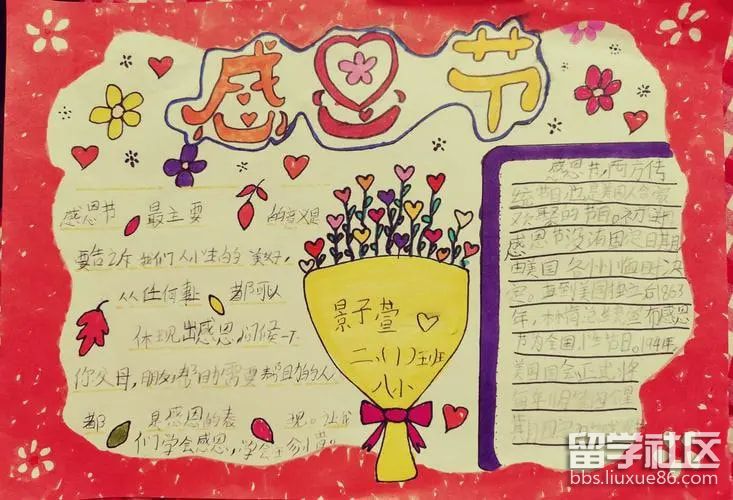 感恩节
感恩节 最主要 的意义是
要告诉我们人生的美好,
从任何事 都可以
体现出感恩,问候一下
你父母,朋友,帮助需要帮助的人
都 是感恩的表 现。让我
们学会感恩,学会
景子萱
二、(1)班
八小
感恩节,西方传
统节日,是美国人
的节日。初时
感恩节没有固定日期
由美国各州临时决
定。直到美国独立后1863
年,林肯总统宣布感恩
节为全国性节日。1941年
美国国会正式将
每年11月第四个星
留学社区
bbs.liuxue86.com